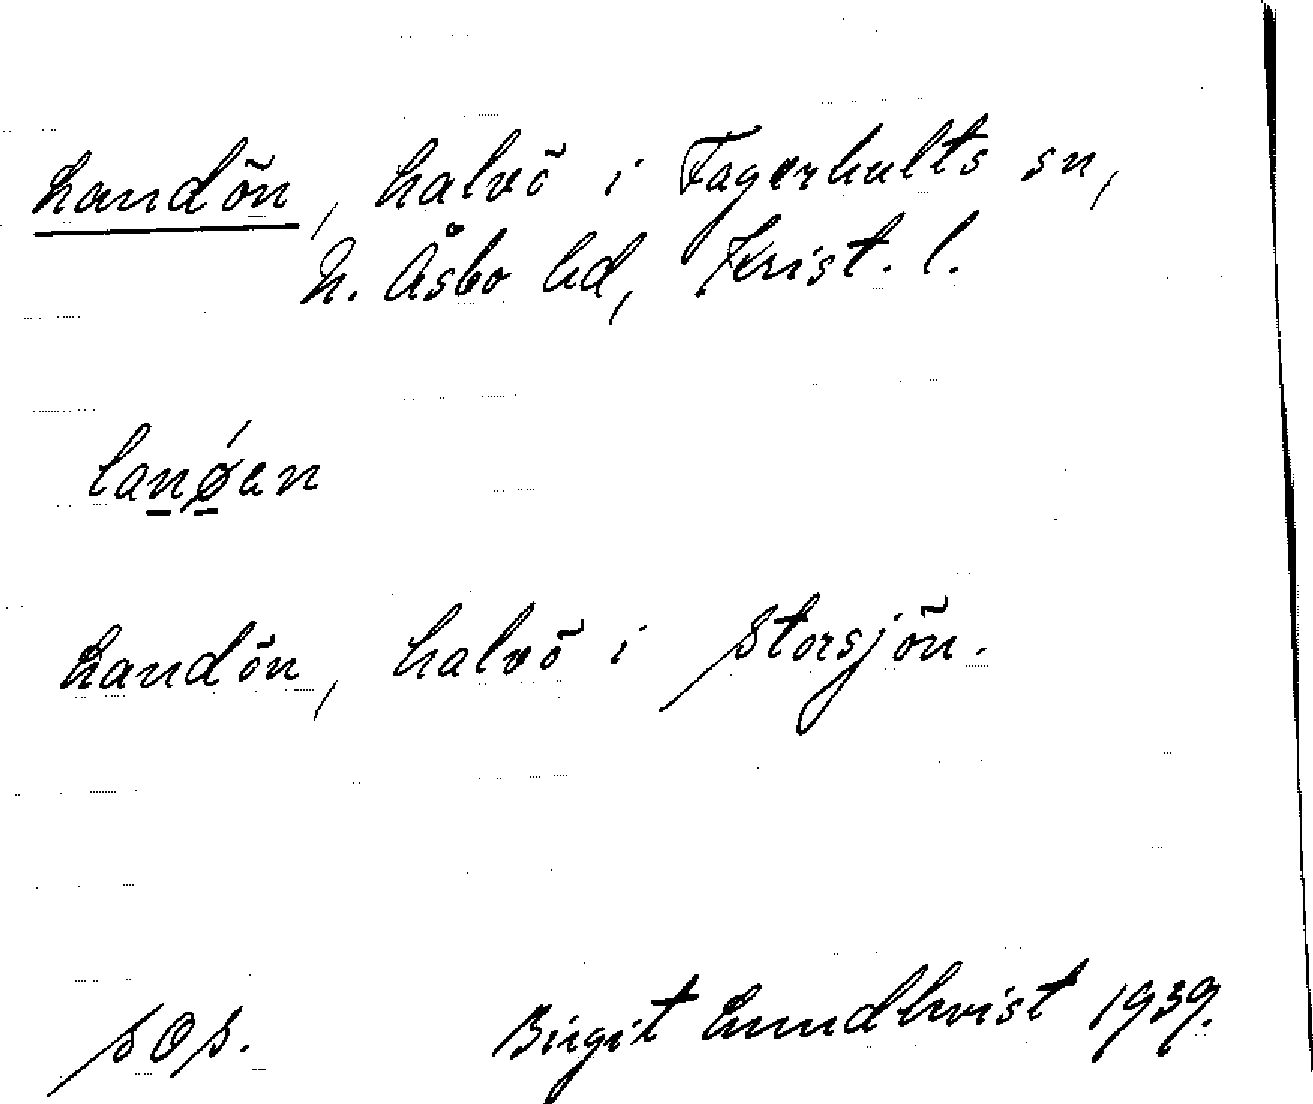 Landön, halvö i Fagerhults sn,
N. Åsbo hd, Krist. l.
lanǿen
Landön, halvö i Storsjön.
SOS. Birgit Lundkvist 1939.